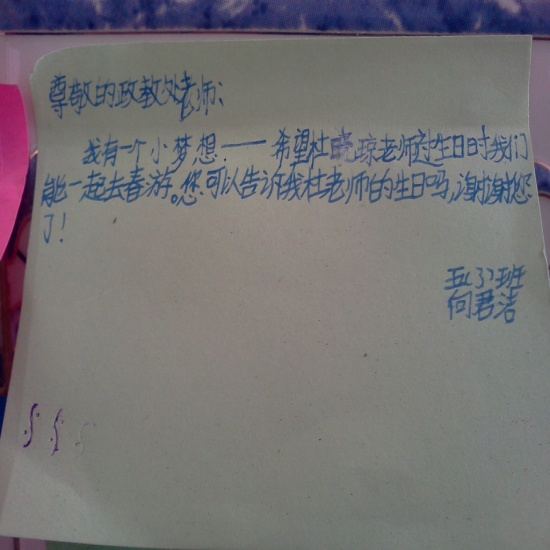 尊敬的政教处老师：
我有一个小梦想——希望杜晓琼老师过生日时我们
能一起去春游。您可以告诉我杜老师的生日吗，谢谢您
了！
五（3）班
何君洁